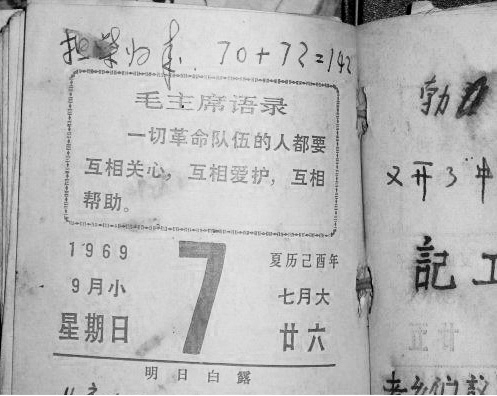 担柴归来. 70+72=142
毛主席语录
一切革命队伍的人都要
互相关心，互相爱护，互相
帮助。
1969
9月小
星期日
7
夏历己酉年
七月大
廿六
明日白露
勃
又开了中
記工